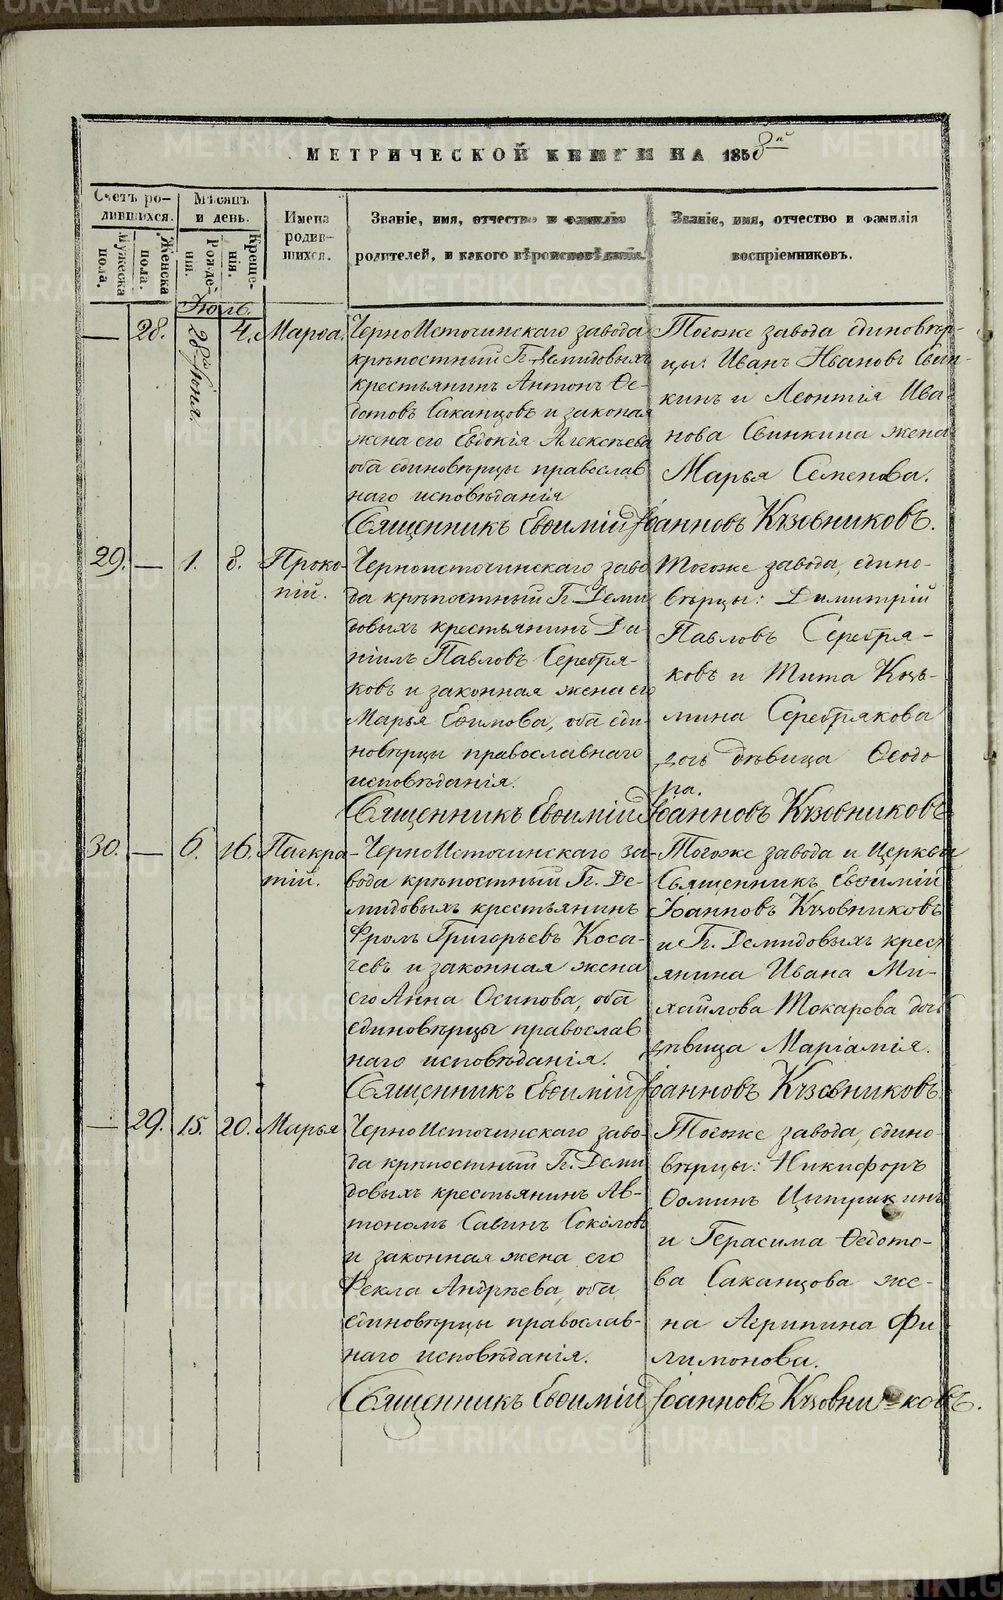 МЕТРИЧЕСКОЙ КНИГИ НА 1858й
Счетъ родившихся.
Мѣсяцъ и день.
Имена родившихся.
Званіе, имя, отчество и фамилія
родителей, и какого вѣроисповѣданія.
Званіе, имя, отчество и фамилія
воспріемниковъ.
Мужеска пола.
Женска пола.
Рожденія.
Крещенія.
Іюль.
— 28. 28го Іюня. 4. Марѳа.
ЧерноИсточинскаго завода
крѣпостный Г. Демидовыхъ
крестьянинъ Антонъ Ѳе-
дотовъ Саканцовъ и законая
жена его Евдокія Алексѣева
оба единовѣрцы православ
наго исповѣданія
Тогоже завода единовѣр-
цы: Иванъ Ивановъ Свин-
кинъ и Леонтія Ива-
нова Свинкина жена
Марья Семенова.
Священникъ Евѳимій Іоанновъ Кузовниковъ.
29. — 1. 8. Проко-
пій.
Черноисточинскаго заво
да крѣпостный Г. Деми
довыхъ крестьянинъ Да
ніилъ Павловъ Серебря-
ковъ и законная жена его
Марья Ефимова, оба еди-
новѣрцы православнаго
исповѣданія.
Тогоже завода, едино-
вѣрцы: Димитрій
Павловъ Серебря-
ковъ и Тита Козь-
мина Серебрякова
дочь дѣвица Ѳеодо
ра.
Священникъ Евѳимій Іоанновъ Кузовниковъ
30. — 6. 16. Панкра-
тій.
ЧерноИсточинскаго за-
вода крѣпостный Г. Де-
мидовыхъ крестьянинъ
Фролъ Григорьевъ Коса-
чевъ и законная жена
его Анна Осипова, оба
единовѣрцы православ
наго исповѣданія.
Тогоже завода и Церкви
Священникъ Евѳимій
Іоанновъ Кузовниковъ
и Г. Демидовыхъ крест
янина Ивана Ми-
хайлова Токарева дочь
дѣвица Маріамія.
Священникъ Евѳимій Іоанновъ Кузовниковъ.
— 29. 15. 20. Марья
ЧерноИсточинскаго заво-
да крѣпостный Г. Деми
довыхъ крестьянинъ Ав-
тономъ Савинъ Соколовъ
и законная жена его
Фекла Андрѣева, оба
единовѣрцы православ-
наго исповѣданія.
Тогоже завода, едино-
вѣрцы: Никифоръ
Ѳоминъ
и Герасима Ѳедото-
ва Саканцова же-
на Агрипина Фи
лимонова.
Священникъ Евѳимій Іоанновъ Кузовниковъ.
METRIKI.GASO-URAL.RU